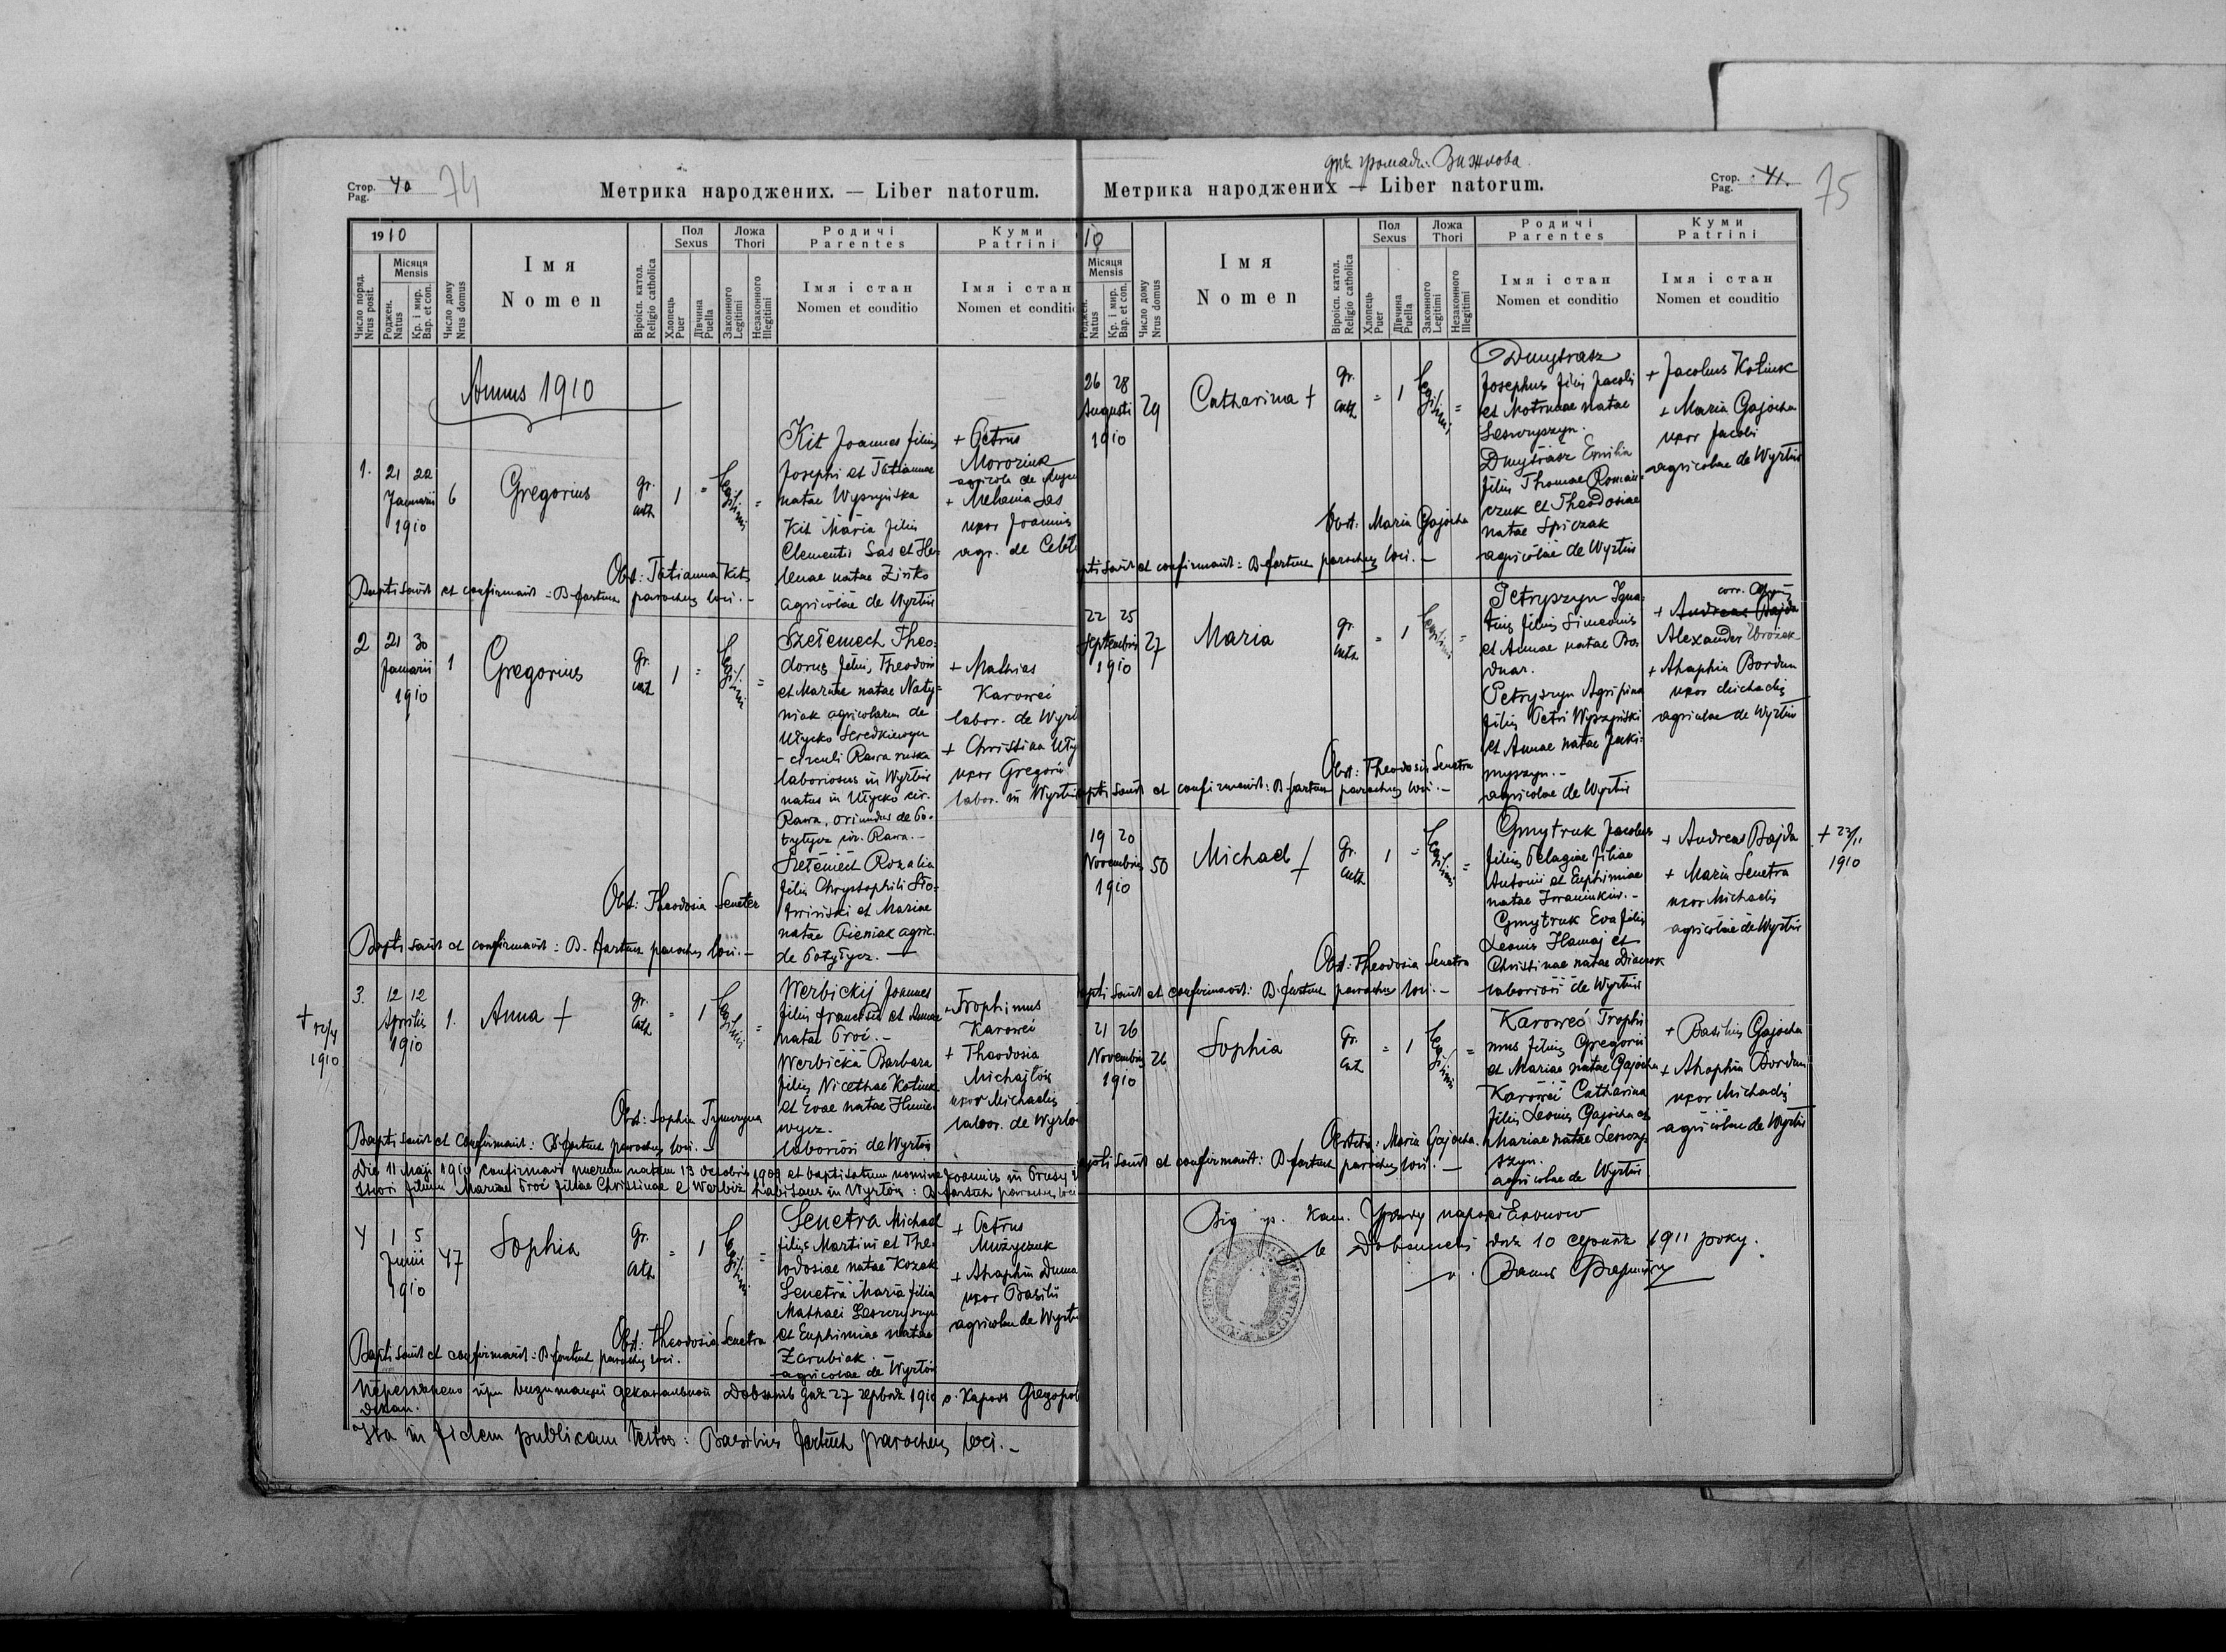 Стор.
Pag.
40
74
Метрика народжених. — Liber natorum.
1910
Число поряд.
Nrus posit.
Місяця
Mensis
Роджен.
Natus
Кр. і мир.
Bap. et con.
Число дому
Nrus domus
Імя
Nomen
Віроісп. катол.
Religio catholica
Пол
Sexus
Хлопець
Puer
Дівчина
Puella
Ложа
Thori
Законного
Legitimi
Незаконного
Illegitimi
Родичі
Parentes
Імя і стан
Nomen et conditio
Куми
Patrini
Імя і стан
Nomen et conditio
Annus 1910
1. 21 22
Januarii
1910
6
Gregorius
gr.
cath
1 =
Legitimi
=
Kit Joannes filius
Josephi et Tatiannae
natae Wyszyńska
Kit Maria filia
Clementis Sas et He-
lenae natae Zinko
agricolae de Wyrtiv
+ Petrus
Moroziuk
agricola de
+ Melania Sas
uxor Joannis
agr. de
Obst: Tatianna Kit
Baptisavit et confirmavit = B. fartuch parochus loci. —
2 21 30
Januarii
1910
1
Gregorius
gr.
cath
1 =
Legitimi
=
Szełemech Theo-
dorus filius Theodori
et Martae natae Naty-
niak agricolarum de
Ułycko Seredkiewycz
- circuli Rawa ruska
laboriosus in Wyrtiv
natus in Ułycko cir.
Rawa, oriundus de Po-
tyłycz cir. Rawa. —
Szełemech Rozalia
filia Chrystophili
et Mariae
natae Pieniak agric.
de Potyłycz. —
+ Mathias
Karowei
labor. de Wyrt
+ Christina Uły
uxor Gregorii
labor. in Wyrtiv
Obst: Theodosia Seneter
Baptisavit et confirmavit: B. fartuch parochus loci. —
+ 12/4
1910
3. 12 12
Aprilis
1910
1.
Anna +
gr.
cath
= 1
Legitimi
=
Werbickij Joannes
filius francisci et Annae
natae Proć. —
Werbicka Barbara
filia Nicethae Kotiuk
et Evae natae
wycz.
laboriosi de Wyrtiv
+ Trophimus
Karowei
+ Theodosia
Michajłów
uxor Michaelis
labor. de Wyrtiv
Obst: Sophia
Baptisavit et confirmavit: B. fartuch parochus loci. —
Die 11 Maji 1910 confirmavi puerum natum 13 Octobris 1909 et baptisatum nomine Joannis in Prusy
filium Mariae Proć filiae Christinae e Werbiż habitans in Wyrtiv: B. fartuch parochus loci
4 1 5
Junii
1910
47
Sophia
gr.
cath
= 1
Legitimi
=
Senetra Michael
filius Martini et The-
odosiae natae Kozak
Senetra Maria filia
Mathaei Leszczyszyn
et Euphimiae natae
Zarubiak.
agricolae de Wyrtiv
+ Petrus
Muzyczuk
+ Ahaphia Duma
uxor Basilii
agricolae de Wyrtiv
Obst: Theodosia Senetra
Baptisavit et confirmavit: B. fartuch parochus loci.
при визитації деканальной дня 27 червня 1910 о.
декан.
Ita in fidem publicam testor: Basilius fartuch parochus loci. —
для громади: Вижлова
Метрика народжених — Liber natorum.
Стор.
Pag.
41.
75
10
Місяця
Mensis
Роджен.
Natus
Кр. і мир.
Bap. et con.
Число дому
Nrus domus
Імя
Nomen
Віроісп. катол.
Religio catholica
Пол
Sexus
Хлопець
Puer
Дівчина
Puella
Ложа
Thori
Законного
Legitimi
Незаконного
Illegitimi
Родичі
Parentes
Імя і стан
Nomen et conditio
Куми
Patrini
Імя і стан
Nomen et conditio
26 28
Augusti
1910
29
Catharina +
gr.
cath
= 1
Legitimi
=
Dmytrasz
Josephus filius Jacobi
et Motrunae natae
Leszczyszyn.
Dmytrasz Emilia
filia Thomae Roman-
czuk et Theodosiae
natae Spiczak
agricolae de Wyrtiv
+ Jacobus Kotiuk
+ Maria Gajocha
uxor Jacobi
agricolae de Wyrtiv
Obst: Maria Gajocha
ptisavit et confirmavit: B. fartuch parochus loci. —
22 25
Septembris
1910
27
Maria
gr.
cath
= 1
Legitimi
=
Petryszyn Igna-
tius filius Simeonis
et Annae natae Bo-
dnar.
Petryszyn Agripina
filia Petri Wyszyński
et Annae natae Jaki-
myszyn. —
agricolae de Wyrtiv
corr.
+ Andreas Bajda
Alexander
+ Ahaphia Bordun
uxor Michaelis
agricolae de Wyrtiv
Obst: Theodosia Senetra
ptisavit et confirmavit: B. fartuch parochus loci. —
19 20
Novembris
1910
50
Michael +
gr.
cath
1 =
Legitimi
=
Gmytruk Jacobus
filius Pelagiae filiae
Antonii et Euphimiae
natae Iwaniukiw. —
Gmytruk Eva filia
Leonis Hamaj et
Christinae natae Diaczok
laboriosi de Wyrtiv
+ Andreas Bajda
+ Maria Senetra
uxor Michaelis
agricolae de Wyrtiv
+ 23/11
1910
Obst: Theodosia Senetra
ptisavit et confirmavit: B. fartuch parochus loci. —
21 26
Novembris
1910
26
Sophia
gr.
cath
= 1
Legitimi
=
Karoweć Trophi
mus filius Gregorii
et Mariae natae Gajocha
Karoweć Catharina
filia Leonis Gajocha et
Mariae natae Leszczy-
szyn.
agricolae de Wyrtiv
+ Basilius Gajocha
+ Ahaphia Bordun
uxor Michaelis
agricolae de Wyrtiv
Obstetrix: Maria Gajocha.
ptisavit et confirmavit: B. fartuch parochus loci. —
Від
дня 10 серпня 1911 року.